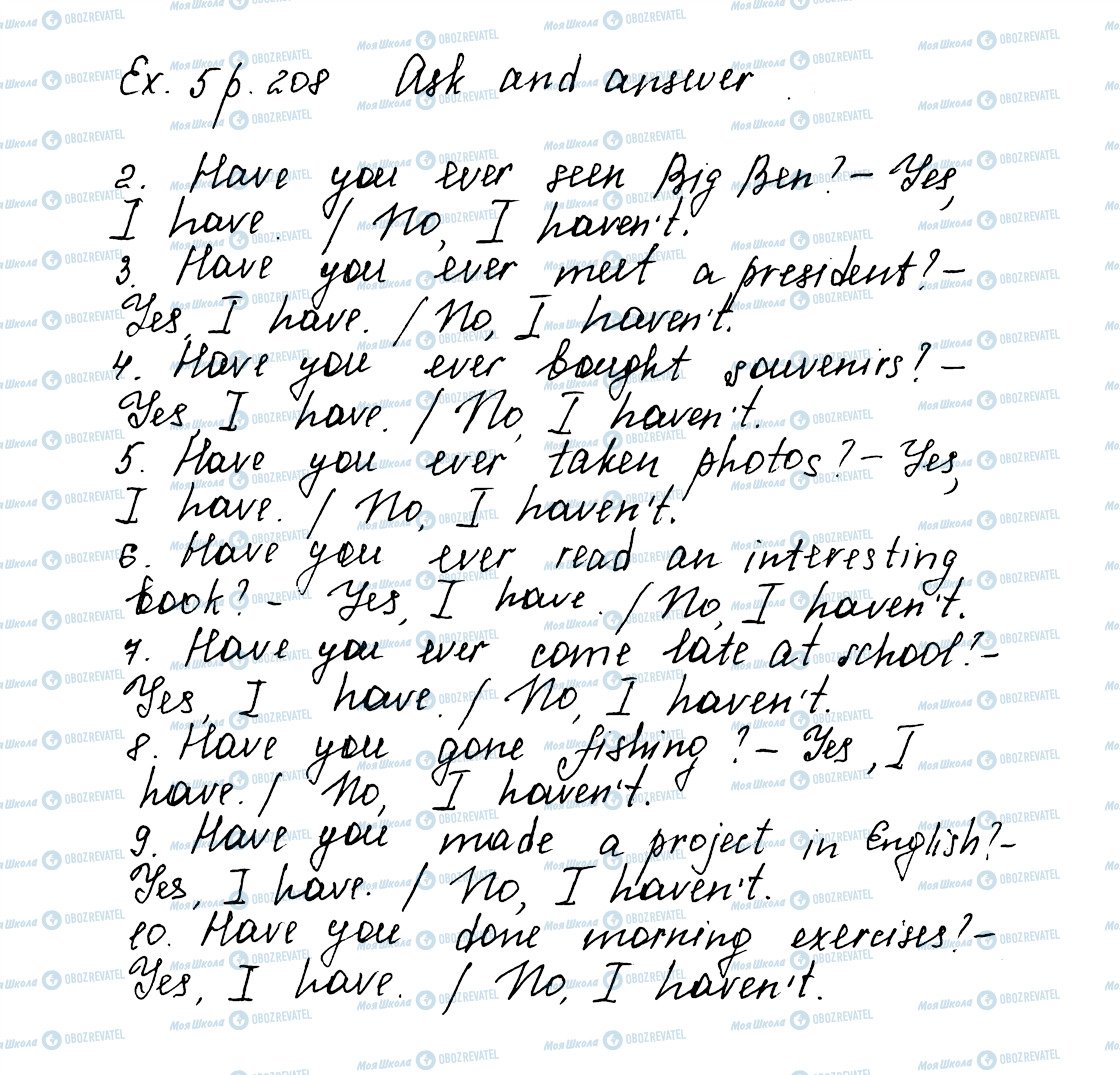 Ex. 5 p. 208 Ask and answer
2. Have you ever seen Big Ben? – Yes,
I have. / No, I haven't.
3. Have you ever meet a president? –
Yes, I have. / No, I haven't.
4. Have you ever bought souvenirs? –
Yes, I have. / No, I haven't.
5. Have you ever taken photos? – Yes,
I have. / No, I haven't.
6. Have you ever read an interesting
book? – Yes, I have. / No, I haven't.
7. Have you ever come late at school? –
Yes, I have. / No, I haven't.
8. Have you gone fishing? – Yes, I
have. / No, I haven't.
9. Have you made a project in English? –
Yes, I have. / No, I haven't.
10. Have you done morning exercises? –
Yes, I have. / No, I haven't.
Моя Школа OBOZREVATEL